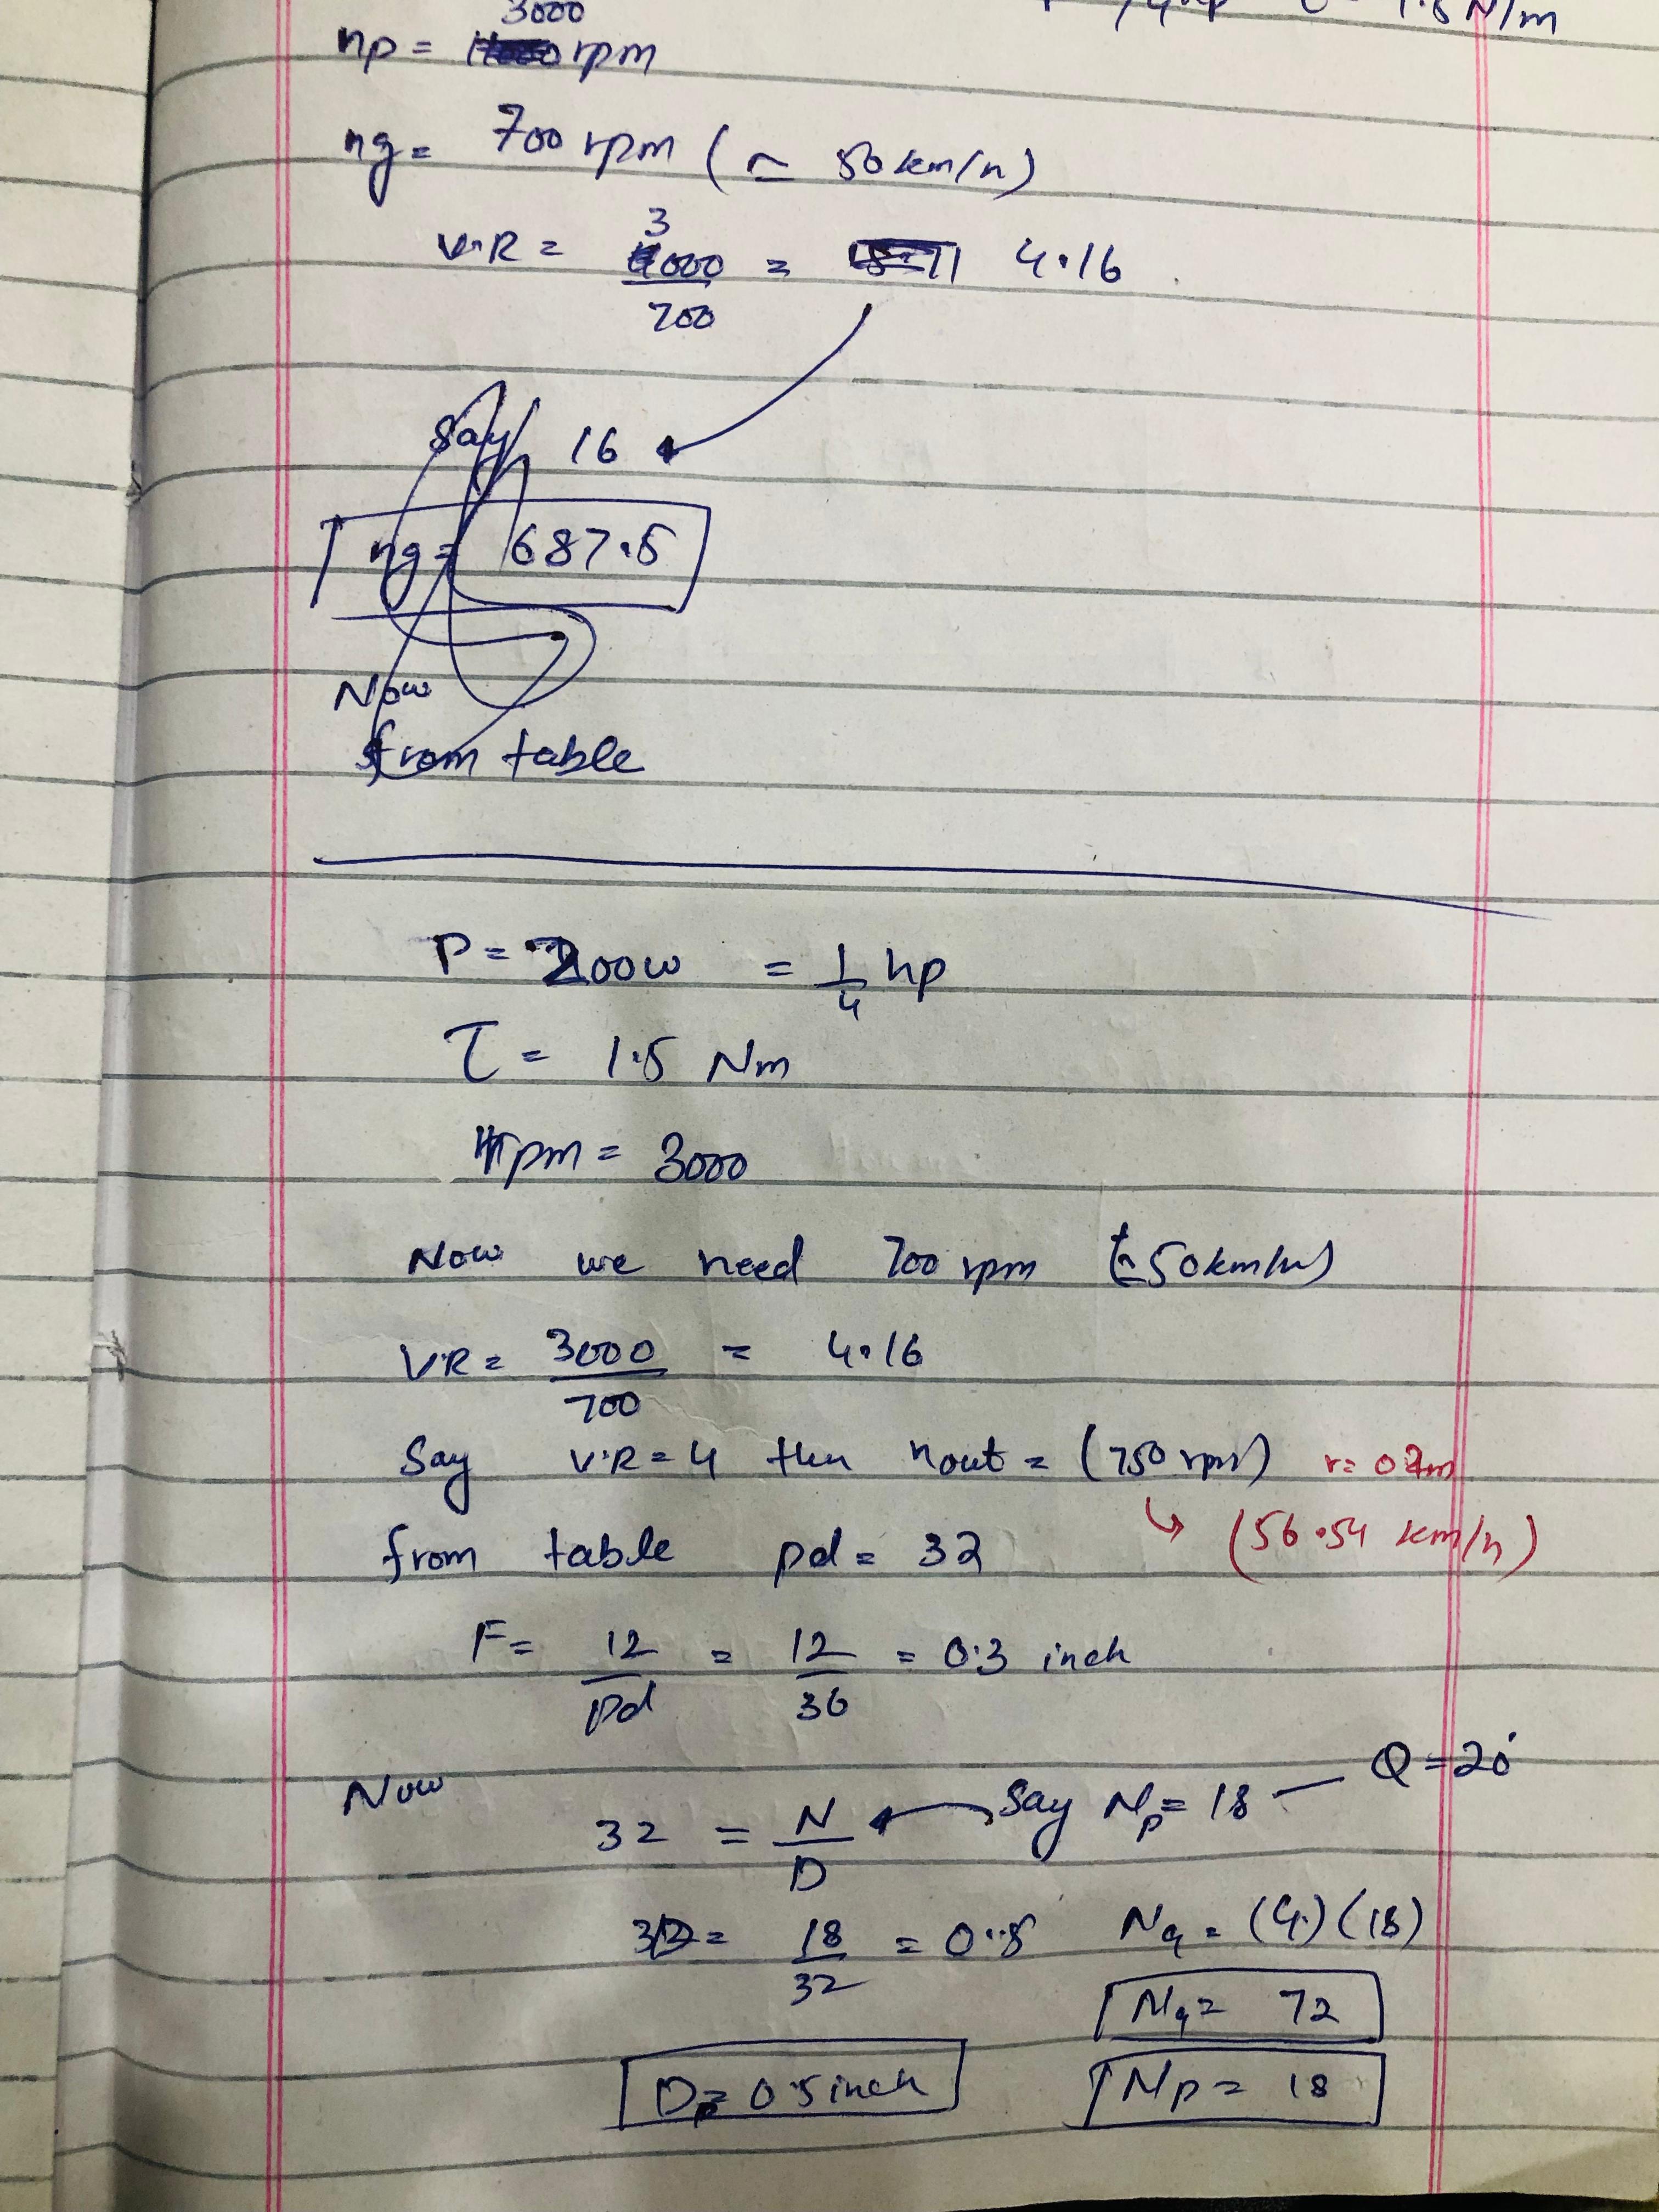 1/4 hp τ = 1.5 N/m
3000
np = rpm
ng = 700 rpm (≃ 50 km/h)
V.R = 3000/700 = 4.16
Say 16
ng = 687.5
Now
from table
P = 200w = 1/4 hp
τ = 1.5 Nm
rpm = 3000
Now we need 700 rpm (≃50km/hr)
V.R = 3000/700 = 4.16
Say V.R = 4 then nout = (750 rpm) r=0.2m
from table pd = 32 ↳ (56.54 km/h)
F = 12/pd = 12/36 = 0.3 inch
Now 32 = N/D ← Say Np = 18 — Q = 20°
32 = 18/32 = 0.5 Ng = (4)(18)
Ng = 72
Dp = 0.5 inch Np = 18